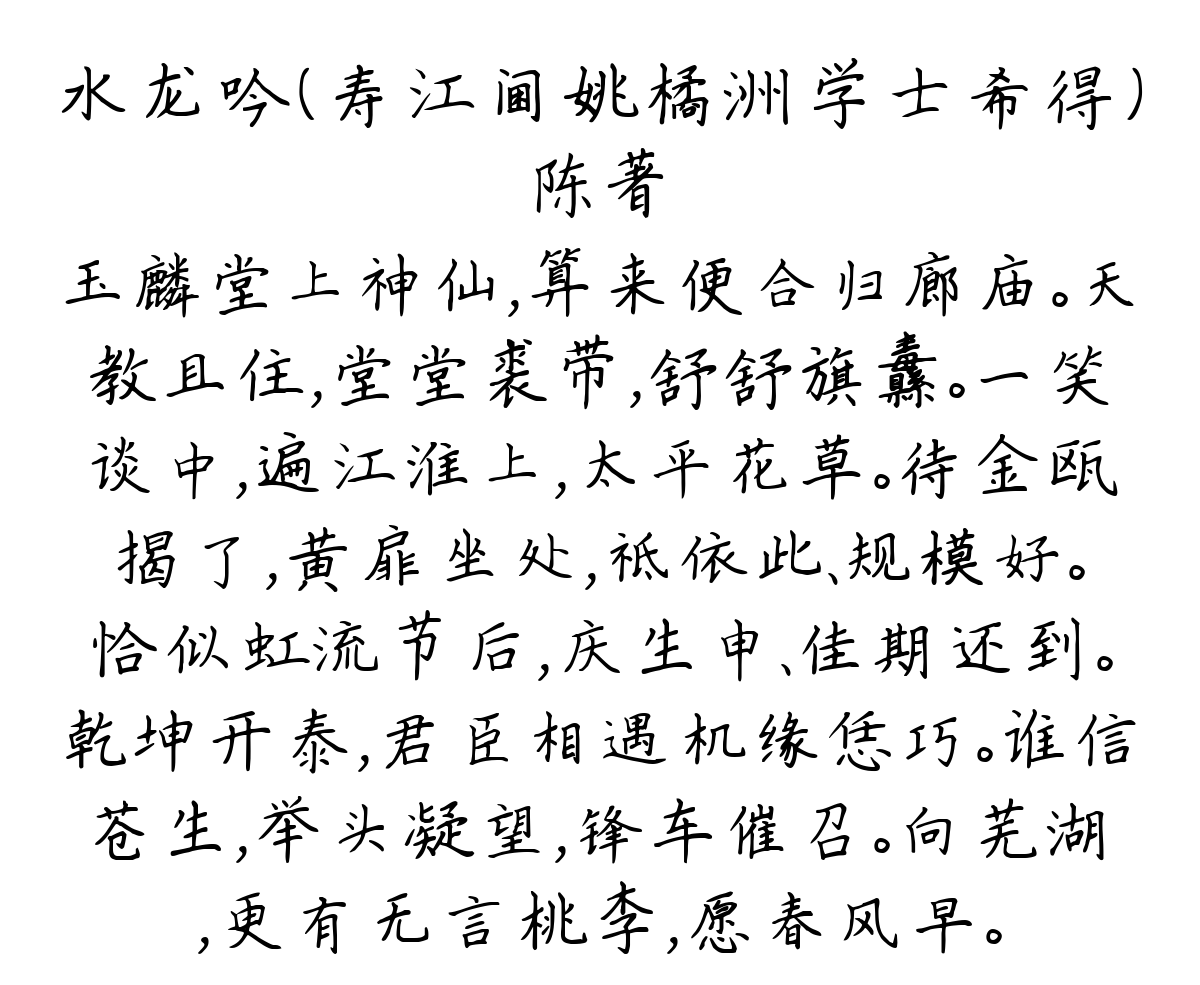 水龙吟(寿江阃姚橘洲学士希得)
陈著
玉麟堂上神仙,算来便合归廊庙。天
教且住,堂堂裘带,舒舒旗纛。一笑
谈中,遍江淮上,太平花草。待金瓯
揭了,黄扉坐处,祗依此、规模好。
恰似虹流节后,庆生申、佳期还到。
乾坤开泰,君臣相遇机缘恁巧。谁信
苍生,举头凝望,锋车催召。向芜湖
,更有无言桃李,愿春风早。